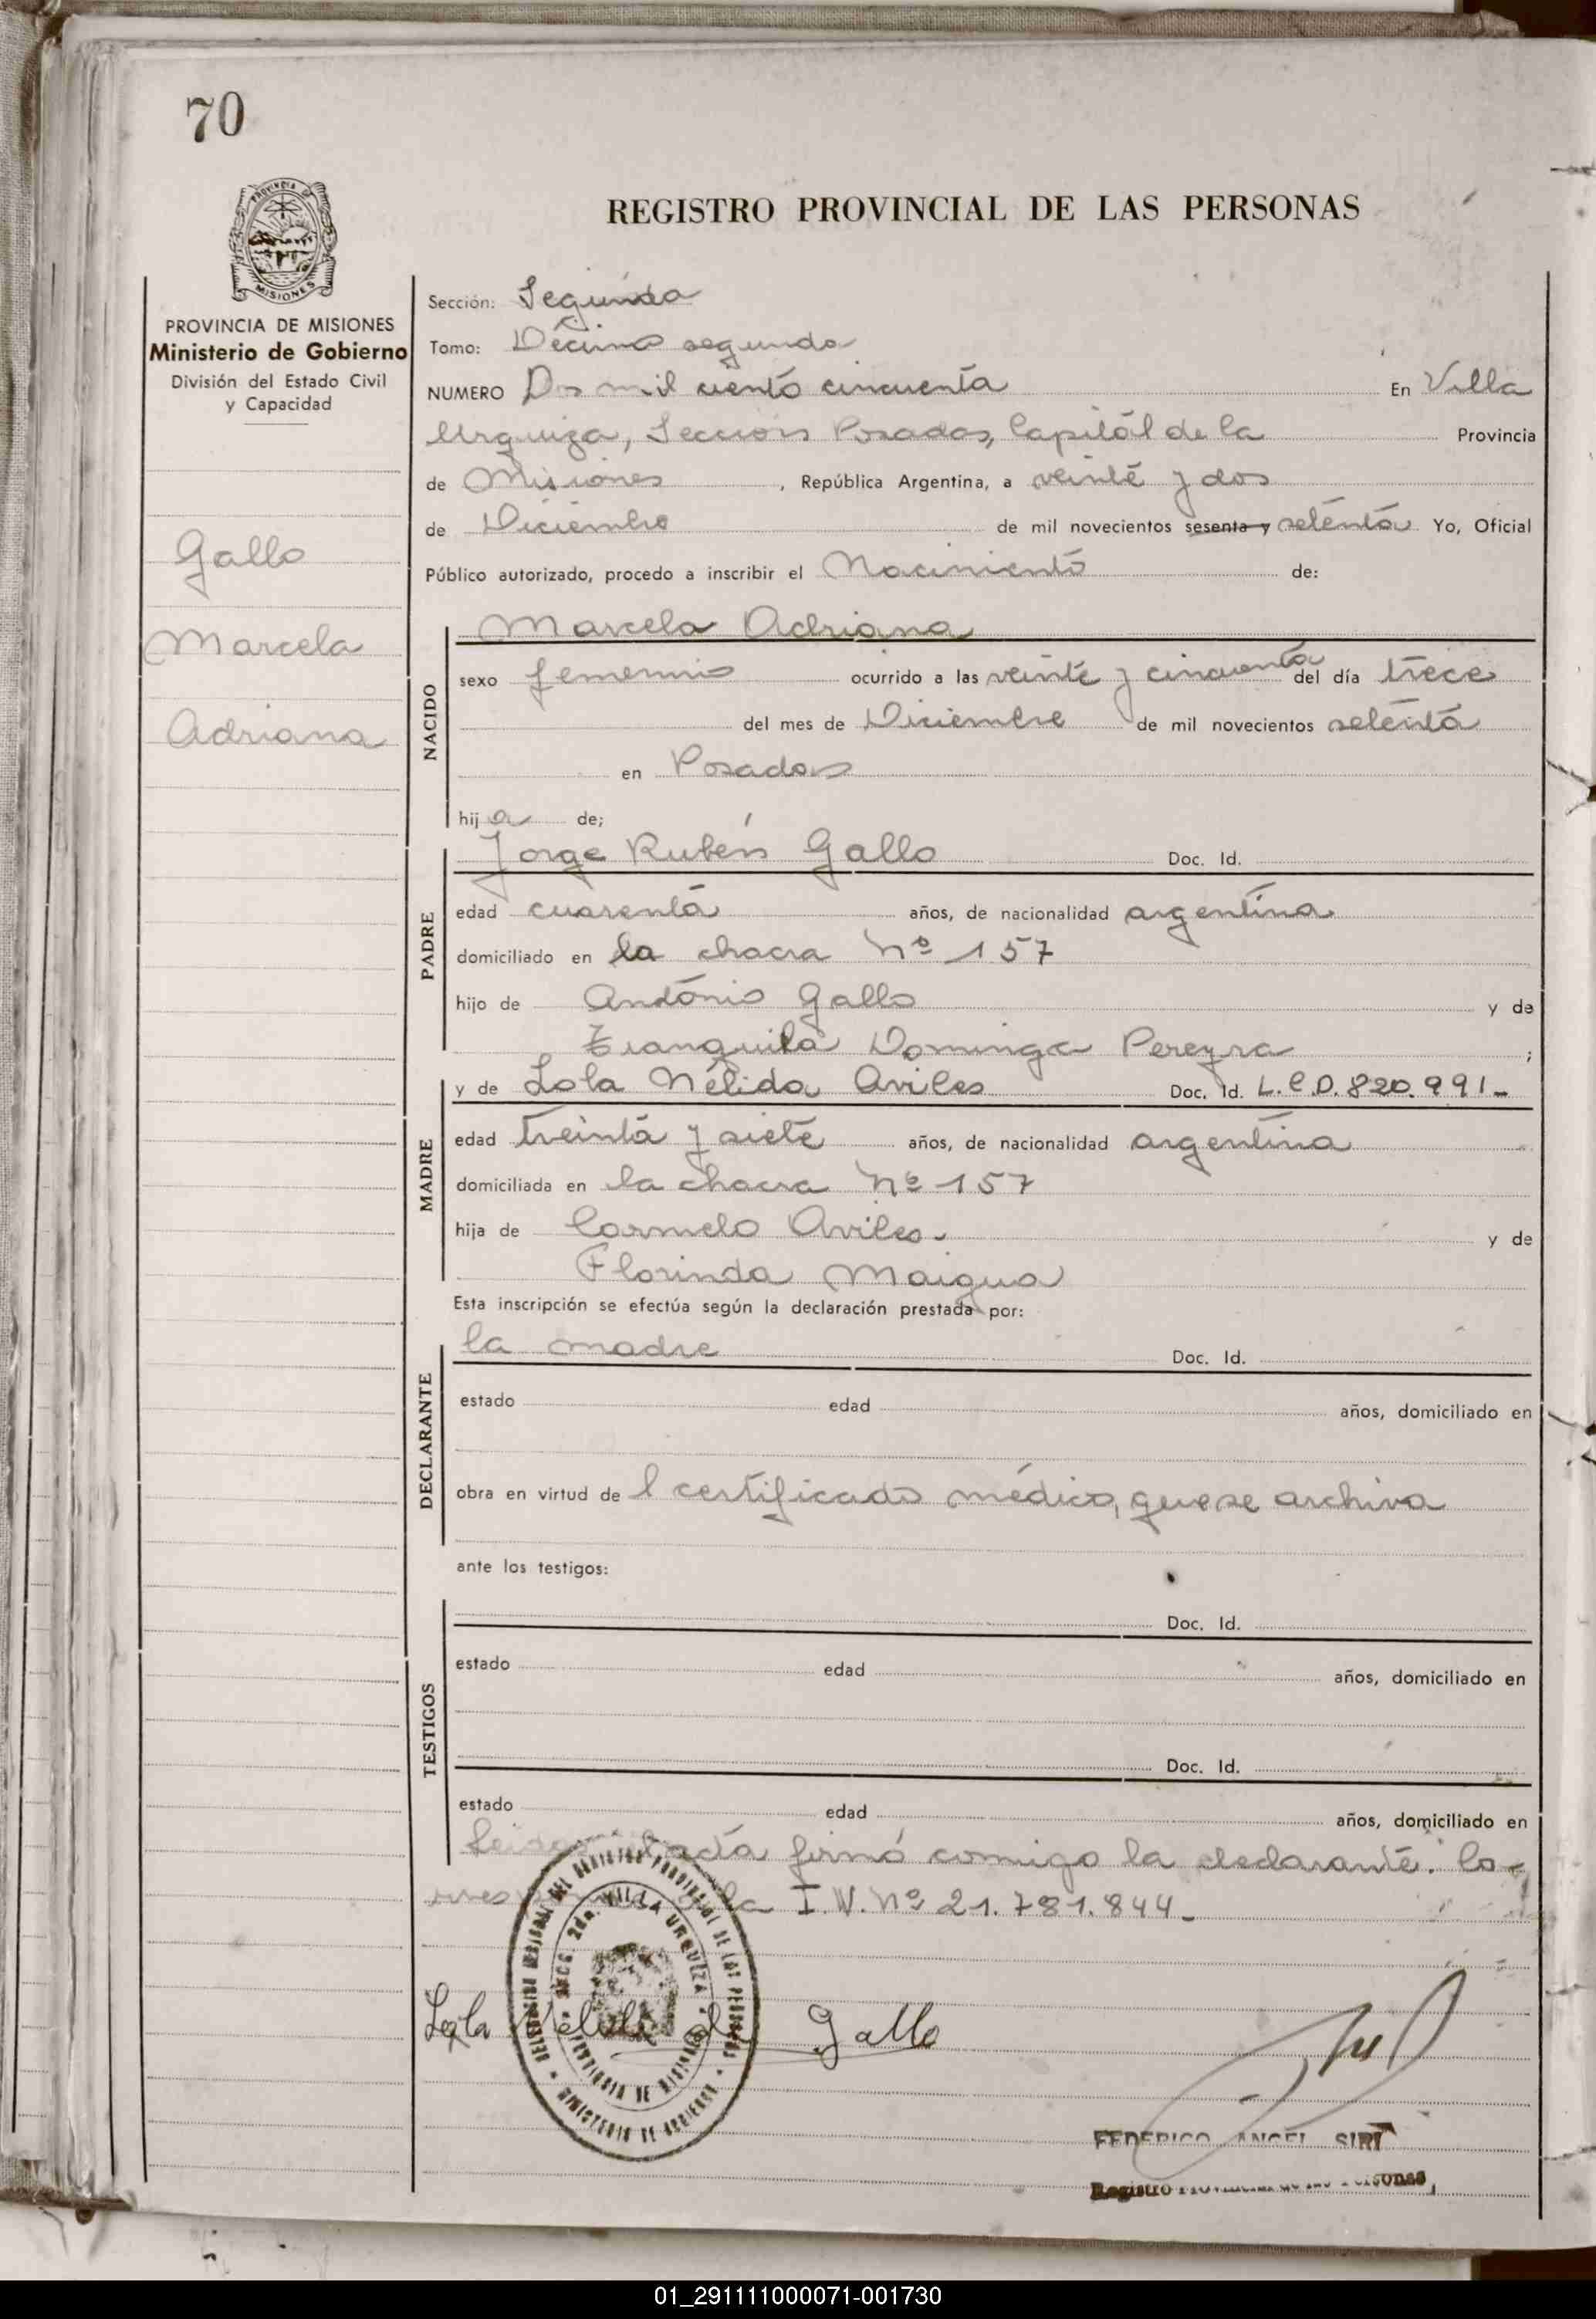 70
PROVINCIA DE
MISIONES
REGISTRO PROVINCIAL DE LAS PERSONAS
PROVINCIA DE MISIONES
Ministerio de Gobierno
División del Estado Civil
y Capacidad
Gallo
Marcela
Adriana
Sección: Segunda
Tomo: Décimo segundo
NUMERO Dos mil ciento cincuenta En Villa
Urquiza, Sección Posadas, Capital de la Provincia
de Misiones, República Argentina, a veinte y dos
de Diciembre de mil novecientos sesenta y setenta Yo, Oficial
Público autorizado, procedo a inscribir el Nacimiento de:
NACIDO
Marcela Adriana
sexo femenino ocurrido a las veinte y cincuenta del día trece
del mes de Diciembre de mil novecientos setenta
en Posadas
hija de;
PADRE
Jorge Rubén Gallo Doc. Id.
edad cuarenta años, de nacionalidad argentina
domiciliado en la chacra Nº 157
hijo de Antonio Gallo y de
Tranquila Dominga Pereyra ;
MADRE
y de Lola Nélida Aviles Doc. Id. L.C.D. 820.991-
edad treinta y siete años, de nacionalidad argentina
domiciliada en la chacra Nº 157
hija de Carmelo Aviles. y de
Florinda Maigua
Esta inscripción se efectúa según la declaración prestada por:
DECLARANTE
la madre Doc. Id.
estado edad años, domiciliado en
obra en virtud de l certificado médico, que se archiva
ante los testigos:
TESTIGOS
Doc. Id.
estado edad años, domiciliado en
Doc. Id.
estado edad años, domiciliado en
Leida acta firmó comigo la declarante. Co-
la I.N. Nº 21.781.844-
DELEGACION REGIONAL DEL REGISTRO PROVINCIAL DE LAS PERSONAS
MINISTERIO DE GOBIERNO
SECC. 2da. VILLA URQUIZA
PROVINCIA DE MISIONES
Lola Gallo
FEDERICO ANGEL SIRI
Registro Provincial de las Personas
01_291111000071-001730